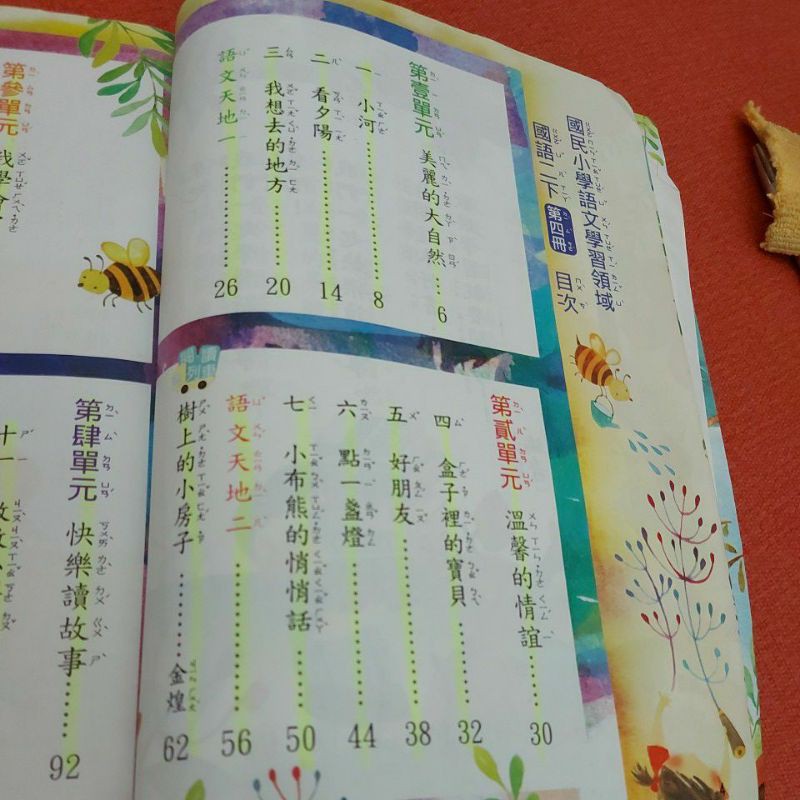 國民小學語文學習領域
國語二下 第四冊 目次
第壹單元 美麗的大自然…6
一 小河…8
二 看夕陽…14
三 我想去的地方…20
語文天地一…26
第貳單元 溫馨的情誼…30
四 盒子裡的寶貝…32
五 好朋友…38
六 點一盞燈…44
七 小布熊的悄悄話…50
語文天地二…56
閱讀列車
樹上的小房子…金煌 62
第參單元
我學會
第肆單元 快樂讀故事…92
十一